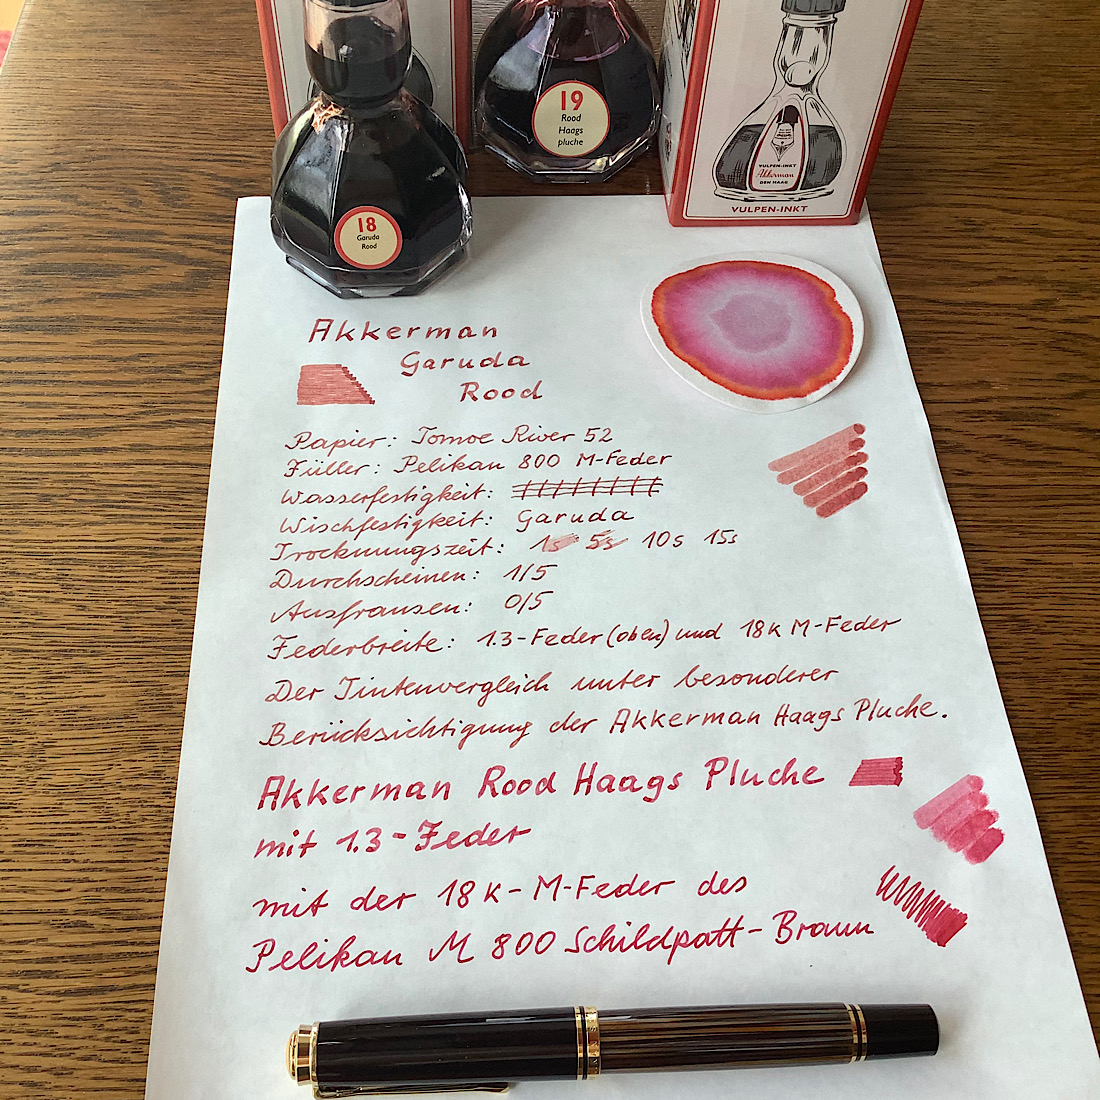 18
Garuda
Rood
19
Rood
Haags
pluche
VULPEN-INKT
Akkerman
DEN HAAG
VULPEN-INKT
Akkerman
Garuda
Rood
Papier: Tomoe River 52
Füller: Pelikan 800 M-Feder
Wasserfestigkeit:
Wischfestigkeit: Garuda
Trocknungszeit: 1s 5s 10s 15s
Durchscheinen: 1/5
Ausfransen: 0/5
Federbreite: 1.3-Feder (oben) und 18K M-Feder
Der Tintenvergleich unter besonderer
Berücksichtigung der Akkerman Haags Pluche.
Akkerman Rood Haags Pluche
mit 1.3-Feder
mit der 18K-M-Feder des
Pelikan M 800 Schildpatt-Braun